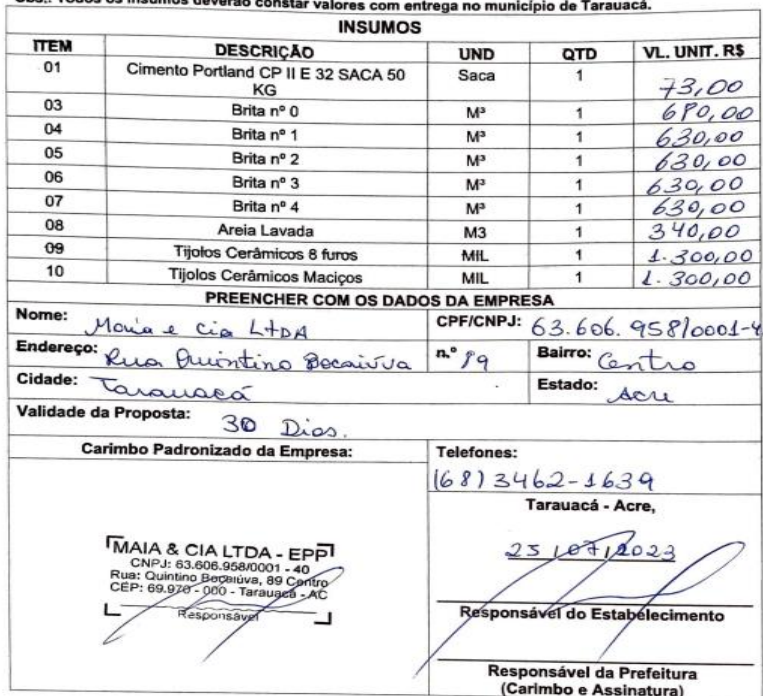 Obs.: Todos os insumos deverão constar valores com entrega no município de Tarauacá.
INSUMOS
ITEM DESCRIÇÃO UND QTD VL. UNIT. R$
01 Cimento Portland CP II E 32 SACA 50 KG Saca 1 73,00
03 Brita nº 0 M³ 1 680,00
04 Brita nº 1 M³ 1 630,00
05 Brita nº 2 M³ 1 630,00
06 Brita nº 3 M³ 1 630,00
07 Brita nº 4 M³ 1 630,00
08 Areia Lavada M3 1 340,00
09 Tijolos Cerâmicos 8 furos MIL 1 1.300,00
10 Tijolos Cerâmicos Maciços MIL 1 1.300,00
PREENCHER COM OS DADOS DA EMPRESA
Nome: Maia e Cia LTDA CPF/CNPJ: 63.606.958/0001-4
Endereço: Rua Quintino Bocaiúva n.º 89 Bairro: Centro
Cidade: Tarauacá Estado: Acre
Validade da Proposta: 30 Dias.
Carimbo Padronizado da Empresa: Telefones:
(68) 3462-1639
Tarauacá - Acre,
25/07/2023
MAIA & CIA LTDA - EPP
CNPJ: 63.606.958/0001 - 40
Rua: Quintino Bocaiúva, 89 Centro
CEP: 69.970 - 000 - Tarauacá - AC
Responsável
Responsável do Estabelecimento
Responsável da Prefeitura
(Carimbo e Assinatura)